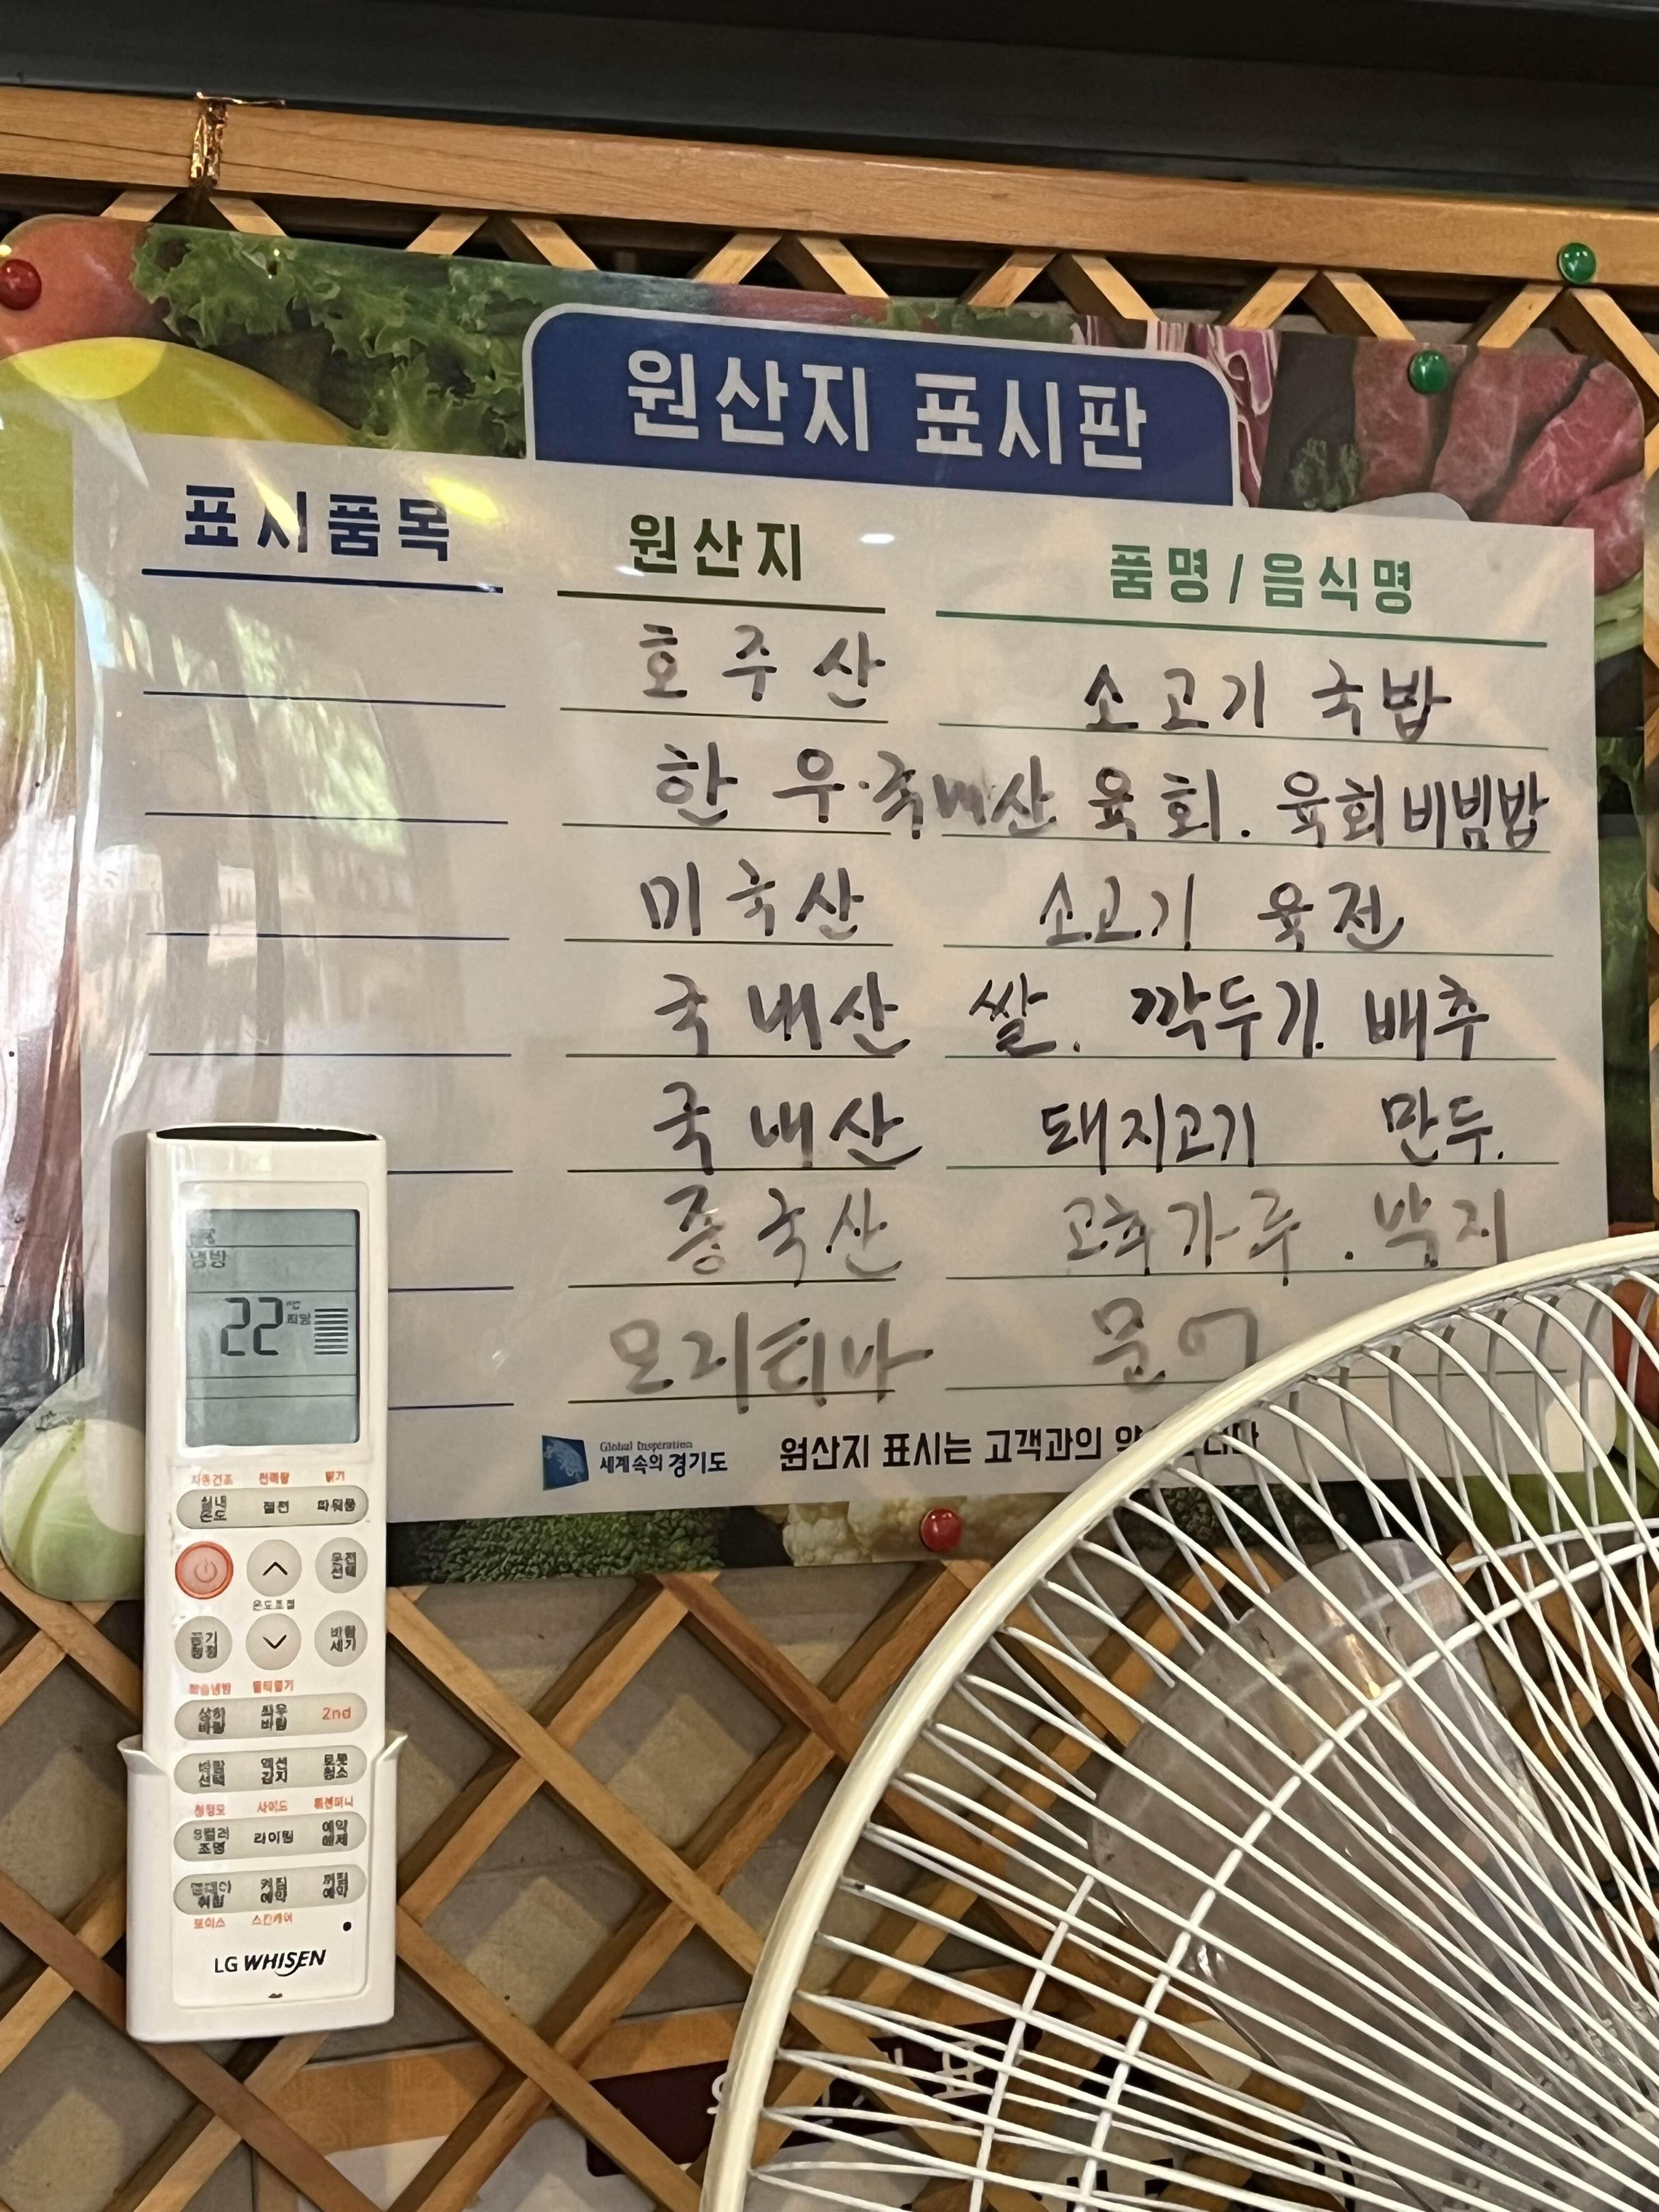 원산지 표시판
표시품목 원산지 품명/음식명
호주산 소고기 국밥
한우·국내산 육회. 육회비빔밥
미국산 소고기 육전
국내산 쌀. 깍두기. 배추
국내산 돼지고기 만두.
중국산 고춧가루.
모리티나 문어
Global Inspiration
세계속의 경기도 원산지 표시는 고객과의
냉방
22 °C
희망
자동건조 전력량
실내온도 절전 파워풍
운전선택
온도조절
공기청정 바람세기
상하바람 좌우바람 2nd
바람선택 로봇청소
사이드
조명 라이팅 예약해제
켜짐예약 꺼짐예약
보이스 스킨케어
LG WHISEN